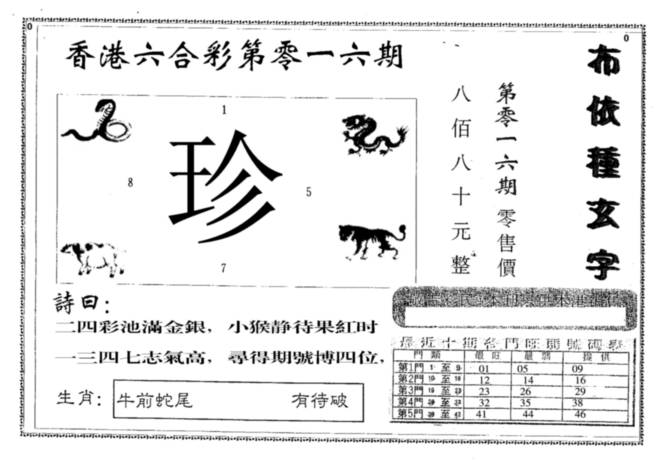 0
0
香港六合彩第零一六期
1
珍
8
5
7
八佰八十元整
第零一六期零售價
布依種玄字
詩曰：
二四彩池滿金銀，小猴静待果紅时
一三四七志氣高，尋得期號博四位，
生肖：牛前蛇尾 有待破
最近十期各門旺開號碼
門類 最旺 提供
第1門 至 01 05 09
第2門 至 12 14 16
第3門 至 23 26 29
第4門 至 32 35 38
第5門 至 41 44 46